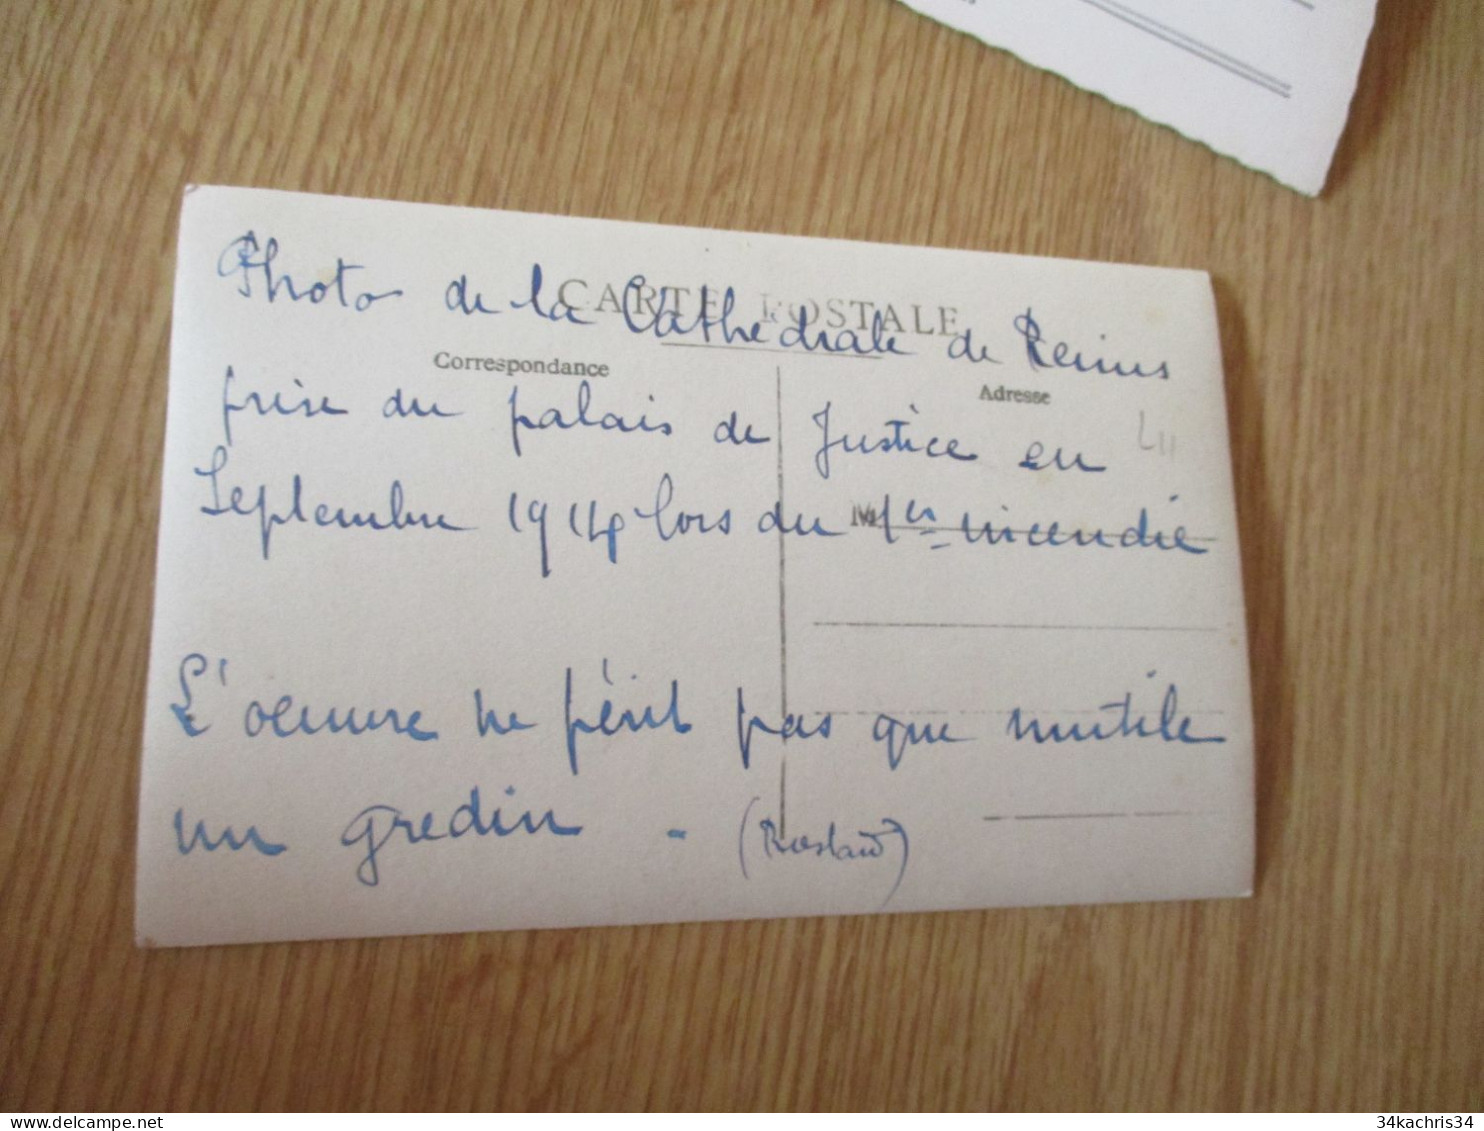 Photo de la Cathédrale de Reims
CARTE POSTALE
Correspondance
Adresse
prise du palais de Justice en
Septembre 1914 lors du 1er incendie
M
L'oeuvre ne périt pas que mutile
un gredin - (Rostand)
34kachris34